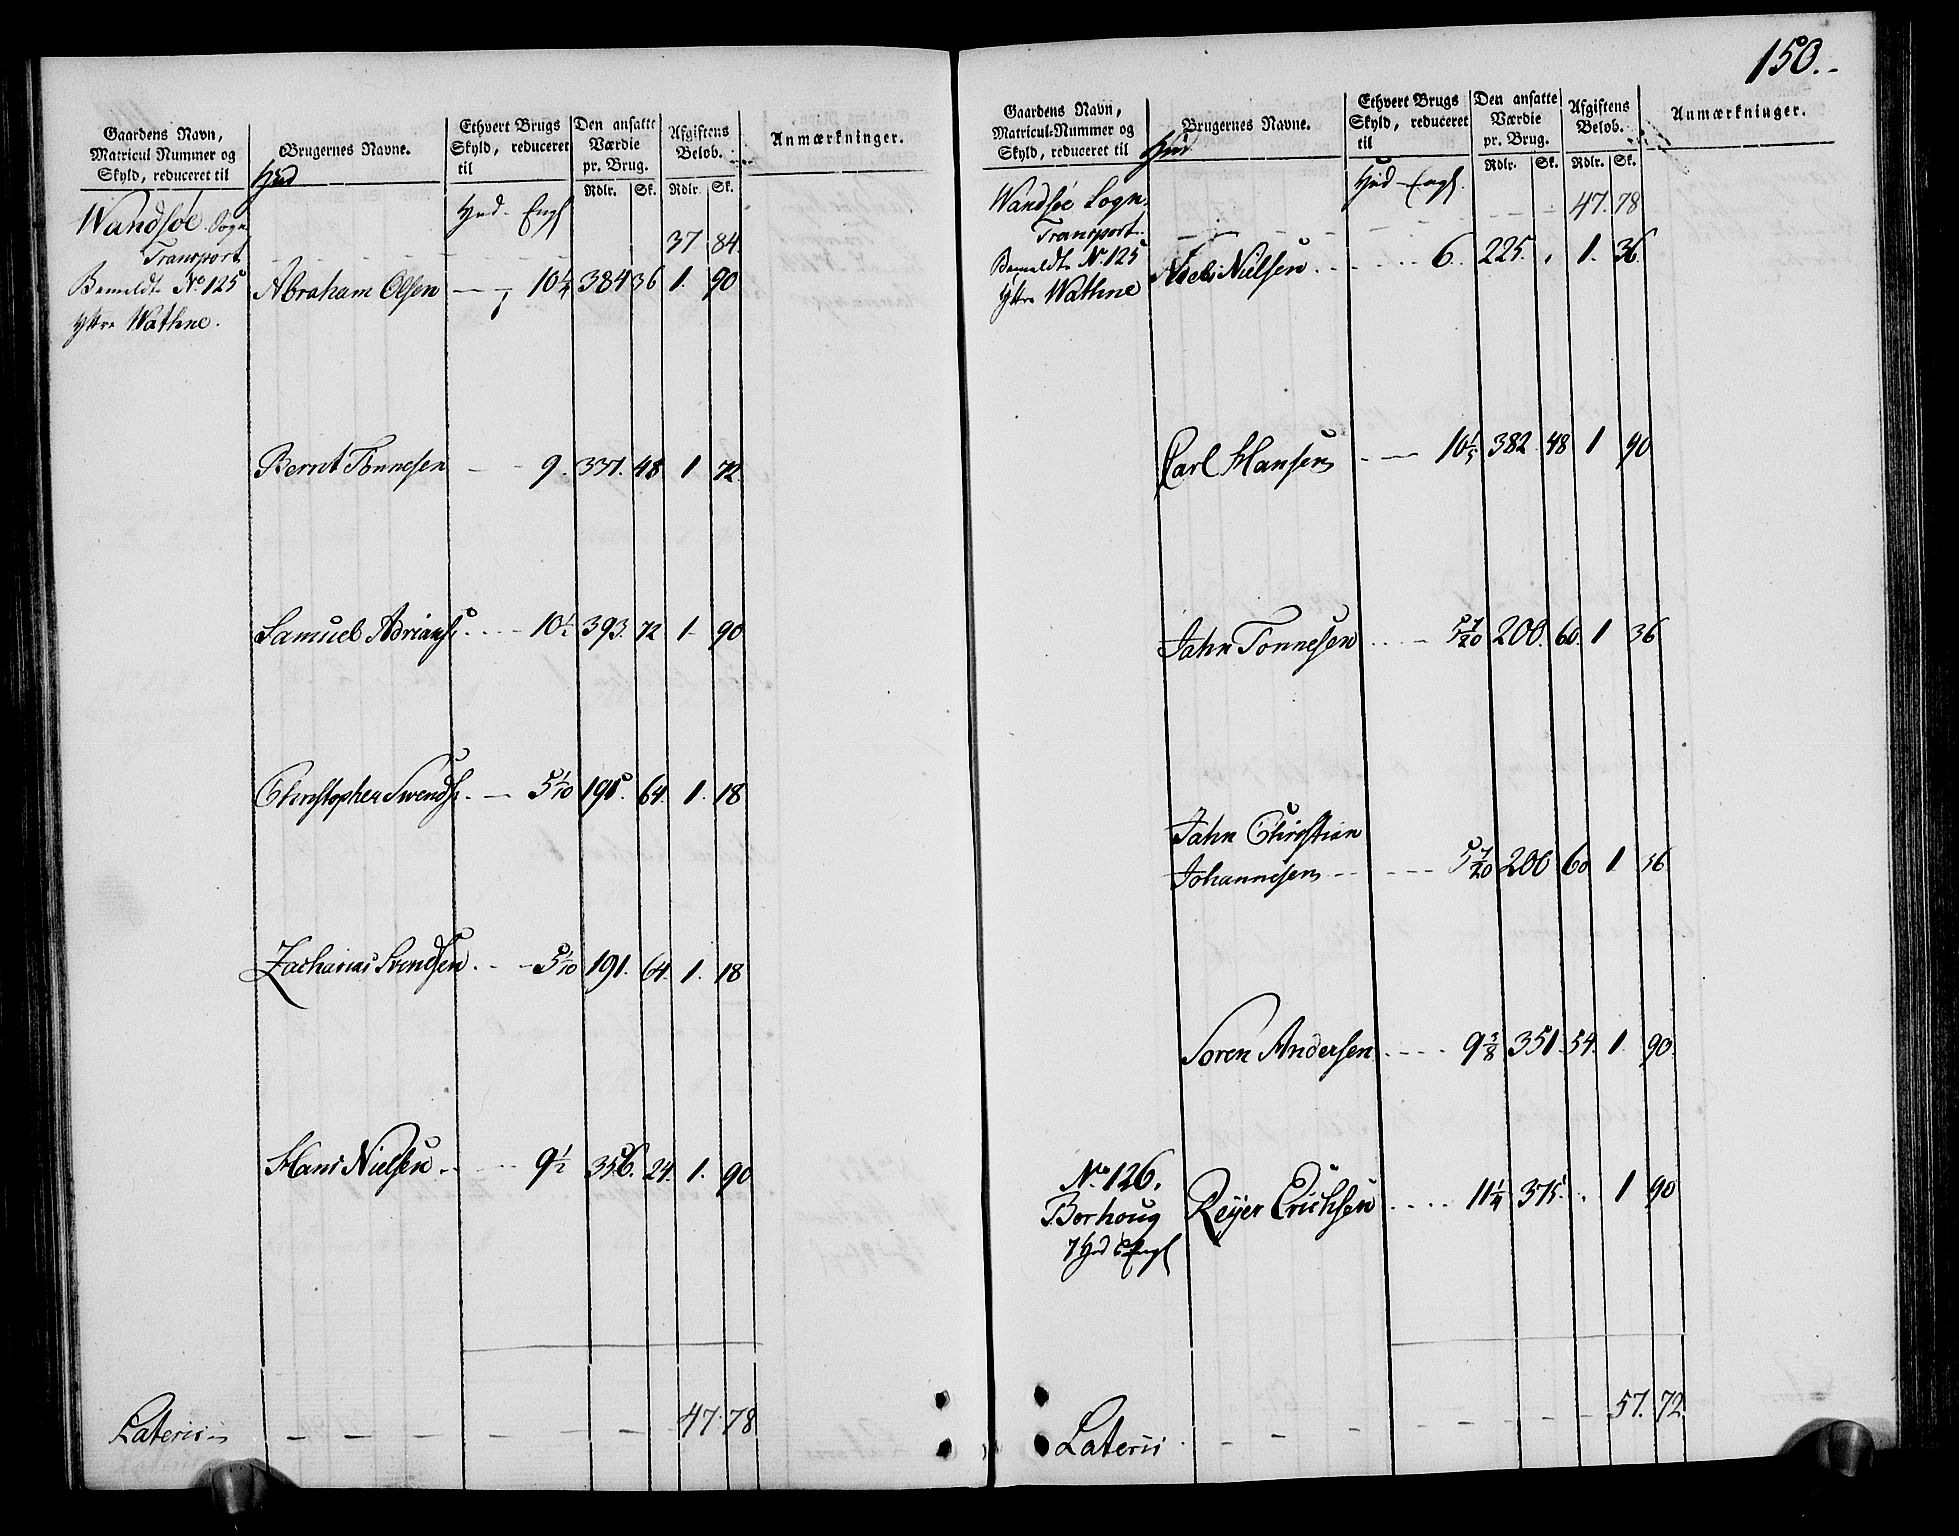 Gaardens Navn,
Matricul Nummer og
Skyld, reduceret til
Hud
Brugernes Navne.
Ethvert Brugs
Skyld, reduceret
til
Den ansatte
Værdie
pr. Brug.
Rdlr. Sk.
Afgiftens
Beløb.
Rdlr. Sk.
Anmærkninger.
Hud. Engl
Wandsøe Sogn
Transport 37 84
Bemeldte No. 125 Abraham Olsen 10¼ 384 36 1. 90
Ytre Wathne.
Bernt Tønnesen 9. 337. 48. 1 72
Samuel Adrians. 10½ 393. 72 1. 90
Christopher Svends. 5 1/10 191. 64. 1. 18
Zacharias Svendsen 5 1/10 191. 64. 1. 18
Hans Nielsen 9½ 356. 24. 1. 90
Lateris 47. 78
150.
Gaardens Navn,
Matricul-Nummer og
Skyld, reduceret til
Hud
Brugernes Navne.
Ethvert Brugs
Skyld, reduceret
til
Den ansatte
Værdie
pr. Brug.
Rdlr. Sk.
Afgiftens
Beløb.
Rdlr. Sk.
Anmærkninger.
Hud Engl.
Wandsøe Sogn. 47. 78
Transport
Bemeldte No. 125 Niels Nielsen 6. 225. 1. 36
Ytre Wathne
Carl Hansen 10 1/5 382 48 1 90
Jahn Tonnesen 5 7/20 200. 60. 1 36
Jahn Christian
Johannesen 5 7/20 200 60 1 36
Soren Andersen 9 3/8 351. 54. 1. 90.
No. 126.
Borhoug Reijer Erichsen 11¼ 375. 1 90
7 Hud 6 Engl
57. 72.
Lateris